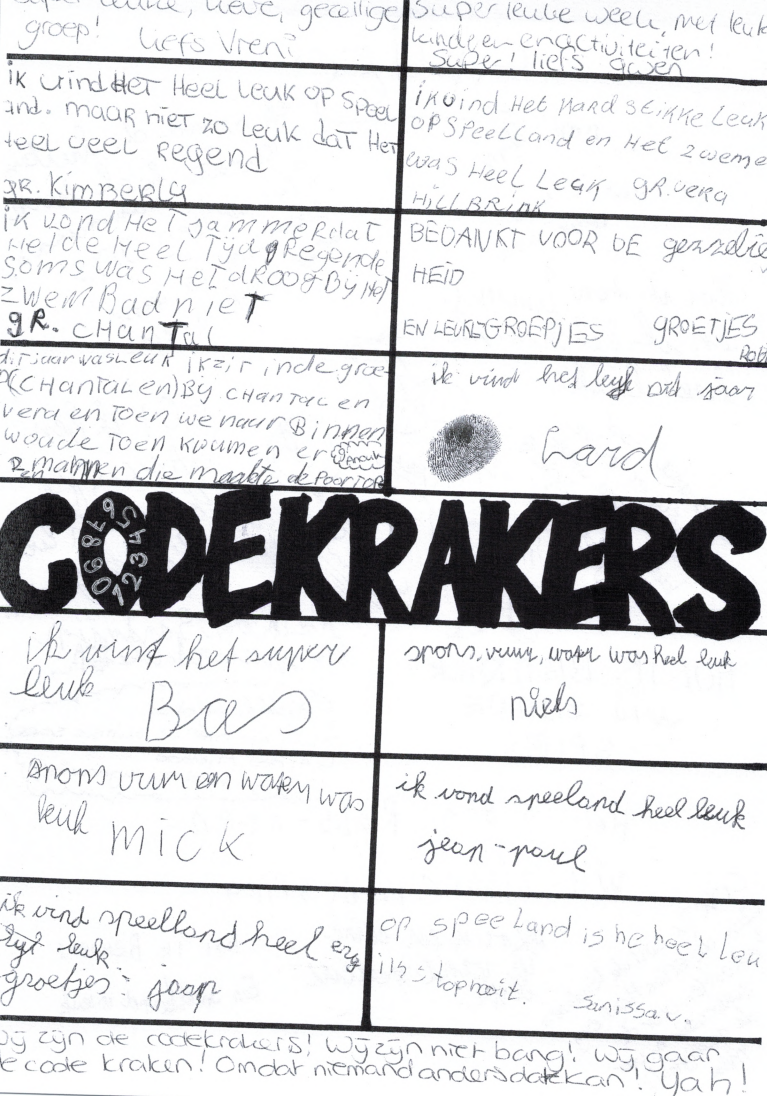 super leuke, lieve, gezellige
groep! liefs Vreni
Super leuke week, met leuk
kinderen en activiteiten!
Super! liefs gwen
ik vind HET HEEL LEUK OP SPEEL
and. maar niet zo leuk dat HET
heel veel Regend
gR. Kimberly
ik vind HET HARD STIKKE LEUK
OP SPEELLAND en HET zweme
was HEEL LEAK gR. vera
HILLBRINK
ik vond HET jammer dat
HET de HEEL Tijd gRegende
soms was HET dROOG Bij HET
zwemBad nieT
gR. CHANTal
BEDANKT VOOR DE gezzelie
HEID
EN LEUKE GROEPJES GROETJES
Rob
dit jaar was Leuk ik zit in de groe
p(CHANTAL en) Bij CHANTAL en
vera en Toen we naar Binnen
woude Toen kwamen er
2 mannen die maakte de POORT OP
ik vind het leuk dit jaar
Lard
CODEKRAKERS
0 9 8 7 6 5 4 3 2 1
ik vint het super
leuk
Bas
spons, vuur, water was heel leuk
niels
spons vuur en watery was
leuk mick
ik vond speeland heel leuk
jean-paul
ik vind speelland heel erg
leuk
groetjes - jaap
op speeLand is he heel leu
Sanissa.v.
wij zijn de codekrakers! Wij zijn niet bang! Wij gaan
de code kraken! Omdat niemand anders dat kan! Yah!